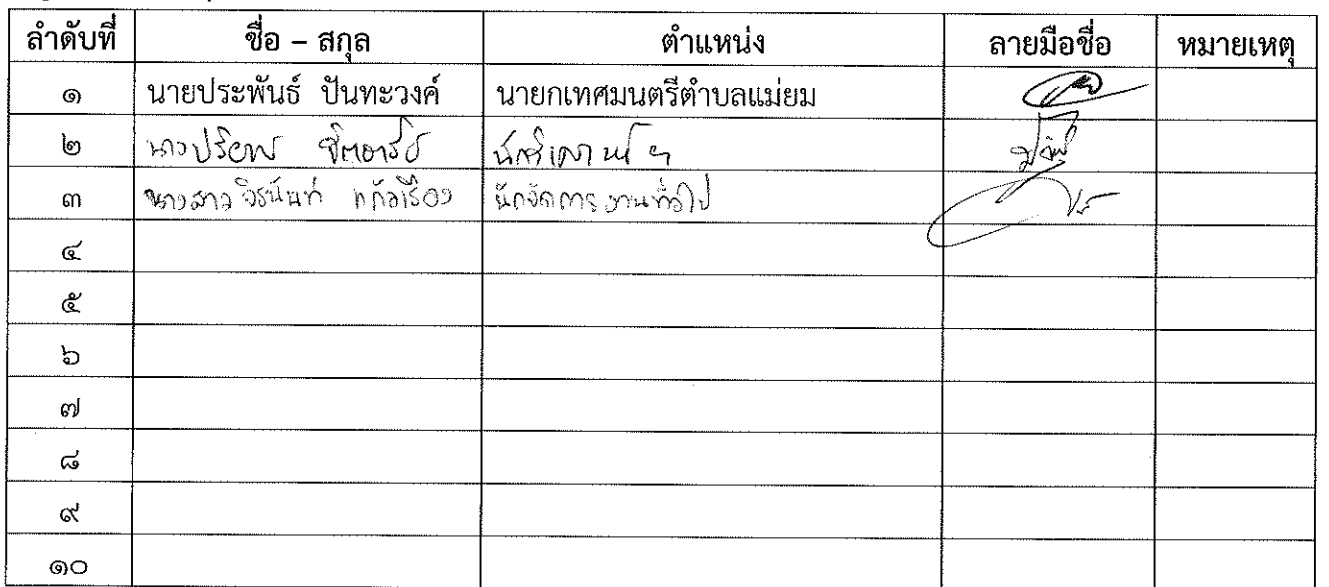 ลำดับที่ ชื่อ – สกุล ตำแหน่ง ลายมือชื่อ หมายเหตุ
๑ นายประพันธ์ ปันทะวงค์ นายกเทศมนตรีตำบลแม่ยม
๒ นาง
๓ นางสาว จิรนันท์ แก้วเรือง นักจัดการงานทั่วไป
๔
๕
๖
๗
๘
๙
๑๐